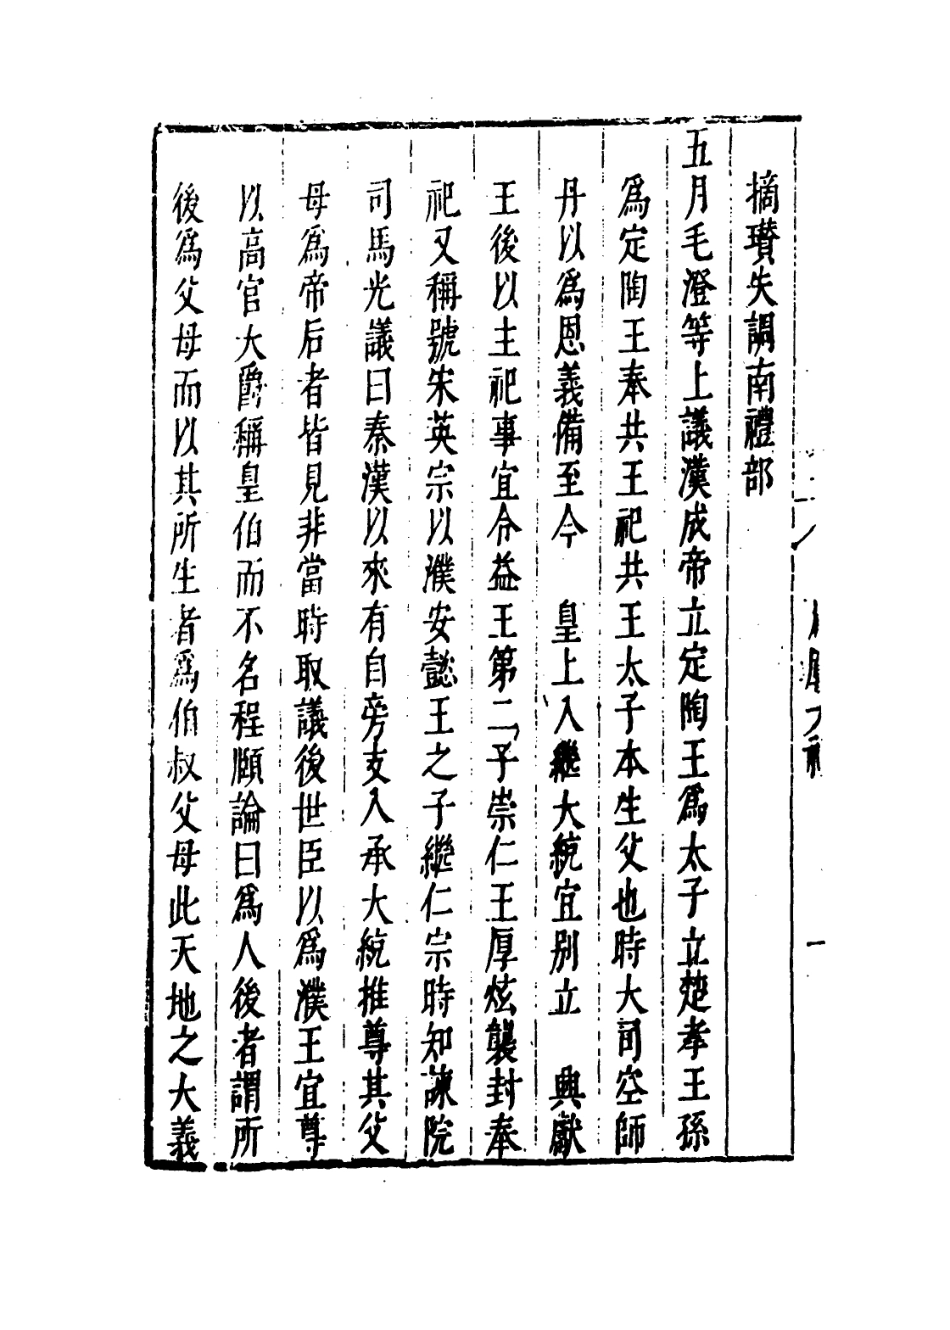 摘瓚失調南禮部
五月毛澄等上議漢成帝立定陶王爲太子立楚孝王孫
爲定陶王奉共王祀共王太子本生父也時大司空師
丹以爲恩義備至今　皇上入繼大統宜别立　興獻
王後以主祀事宜令益王第二子崇仁王厚炫襲封奉
祀又稱號宋英宗以濮安懿王之子繼仁宗時知諫院
司馬光議曰秦漢以來有自旁支入承大統推尊其父
母爲帝后者皆見非當時取議後世臣以爲濮王宜尊
以高官大爵稱皇伯而不名程頤論曰爲人後者謂所
後爲父母而以其所生者爲伯叔父母此天地之大義